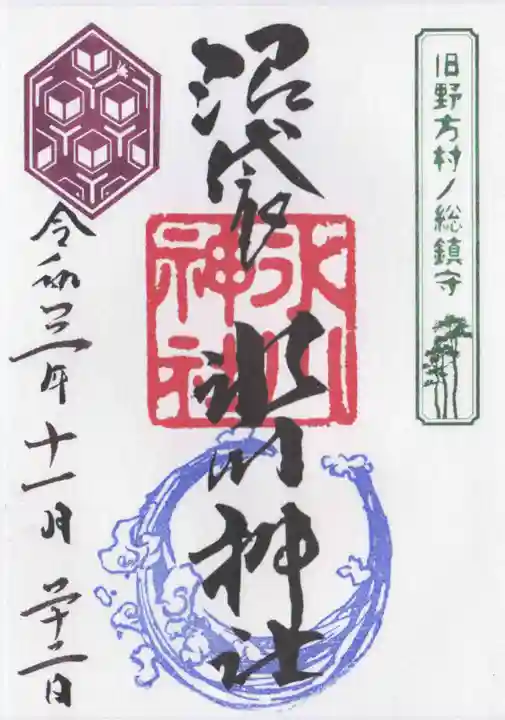 旧野方村ノ総鎮守
沼袋 氷川神社
氷川
神社
令和三年十一月二十二日